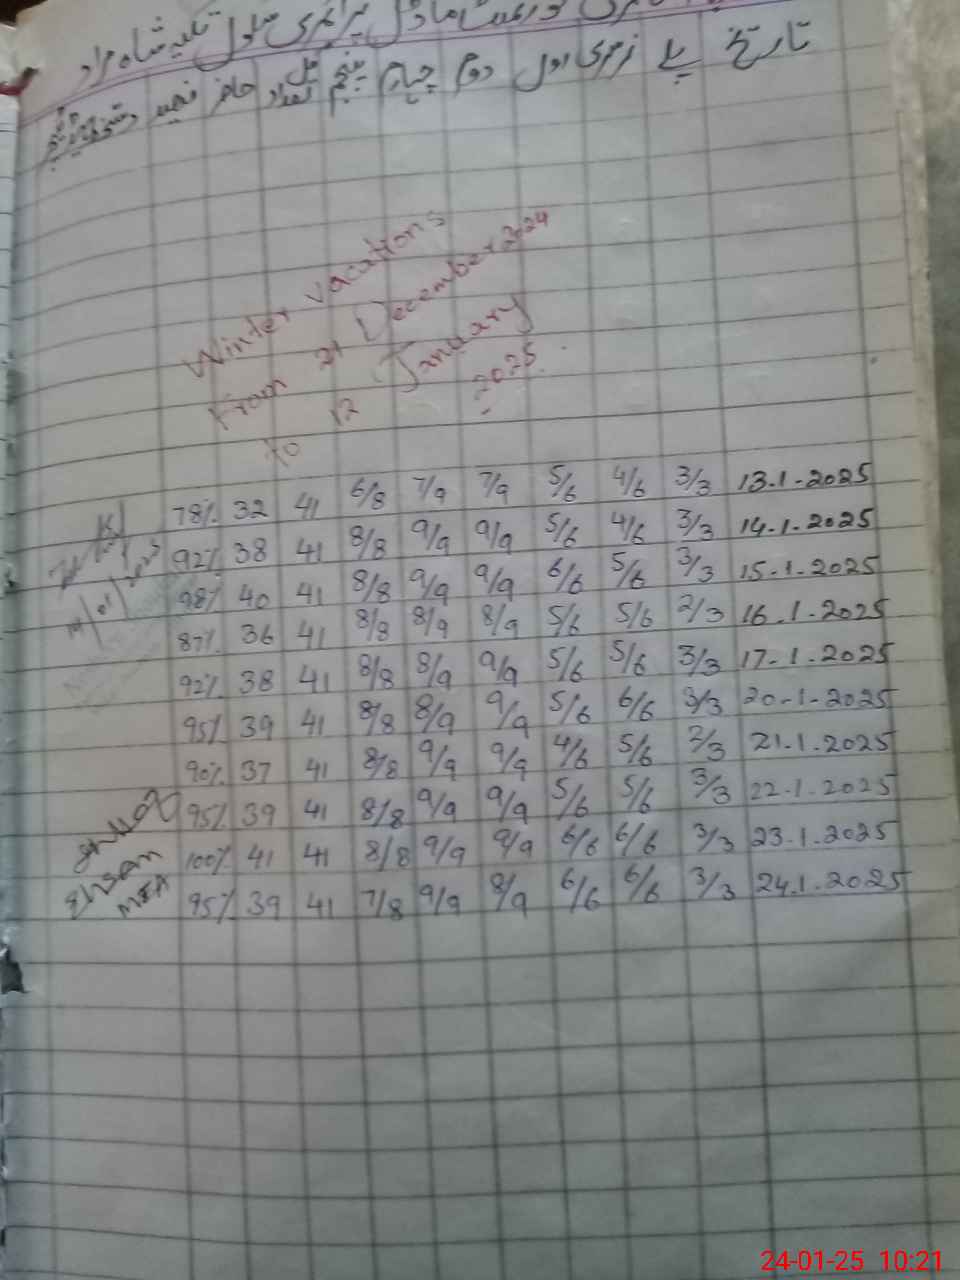 تاریخ پ نرسری اول دوم چہارم پنجم کل تعداد حاضر فیصد
Winter vacations
From 21 December 2024
to 12 January
2025.
78% 32 41 6/8 7/9 7/9 5/6 4/6 3/3 13.1-2025
92% 38 41 8/8 9/9 9/9 5/6 4/6 3/3 14.1.2025
98% 40 41 8/8 9/9 9/9 6/6 5/6 3/3 15.1.2025
87% 36 41 8/8 8/9 8/9 5/6 5/6 2/3 16.1.2025
92% 38 41 8/8 8/9 9/9 5/6 5/6 3/3 17-1.2025
95% 39 41 8/8 8/9 9/9 5/6 6/6 3/3 20-1-2025
90% 37 41 8/8 9/9 9/9 4/6 5/6 2/3 21.1.2025
95% 39 41 8/8 9/9 9/9 5/6 5/6 3/3 22-1-2025
100% 41 41 8/8 9/9 9/9 6/6 6/6 3/3 23.1.2025
Ehsan
MEA 95% 39 41 7/8 9/9 8/9 6/6 6/6 3/3 24.1.2025
24-01-25 10:21